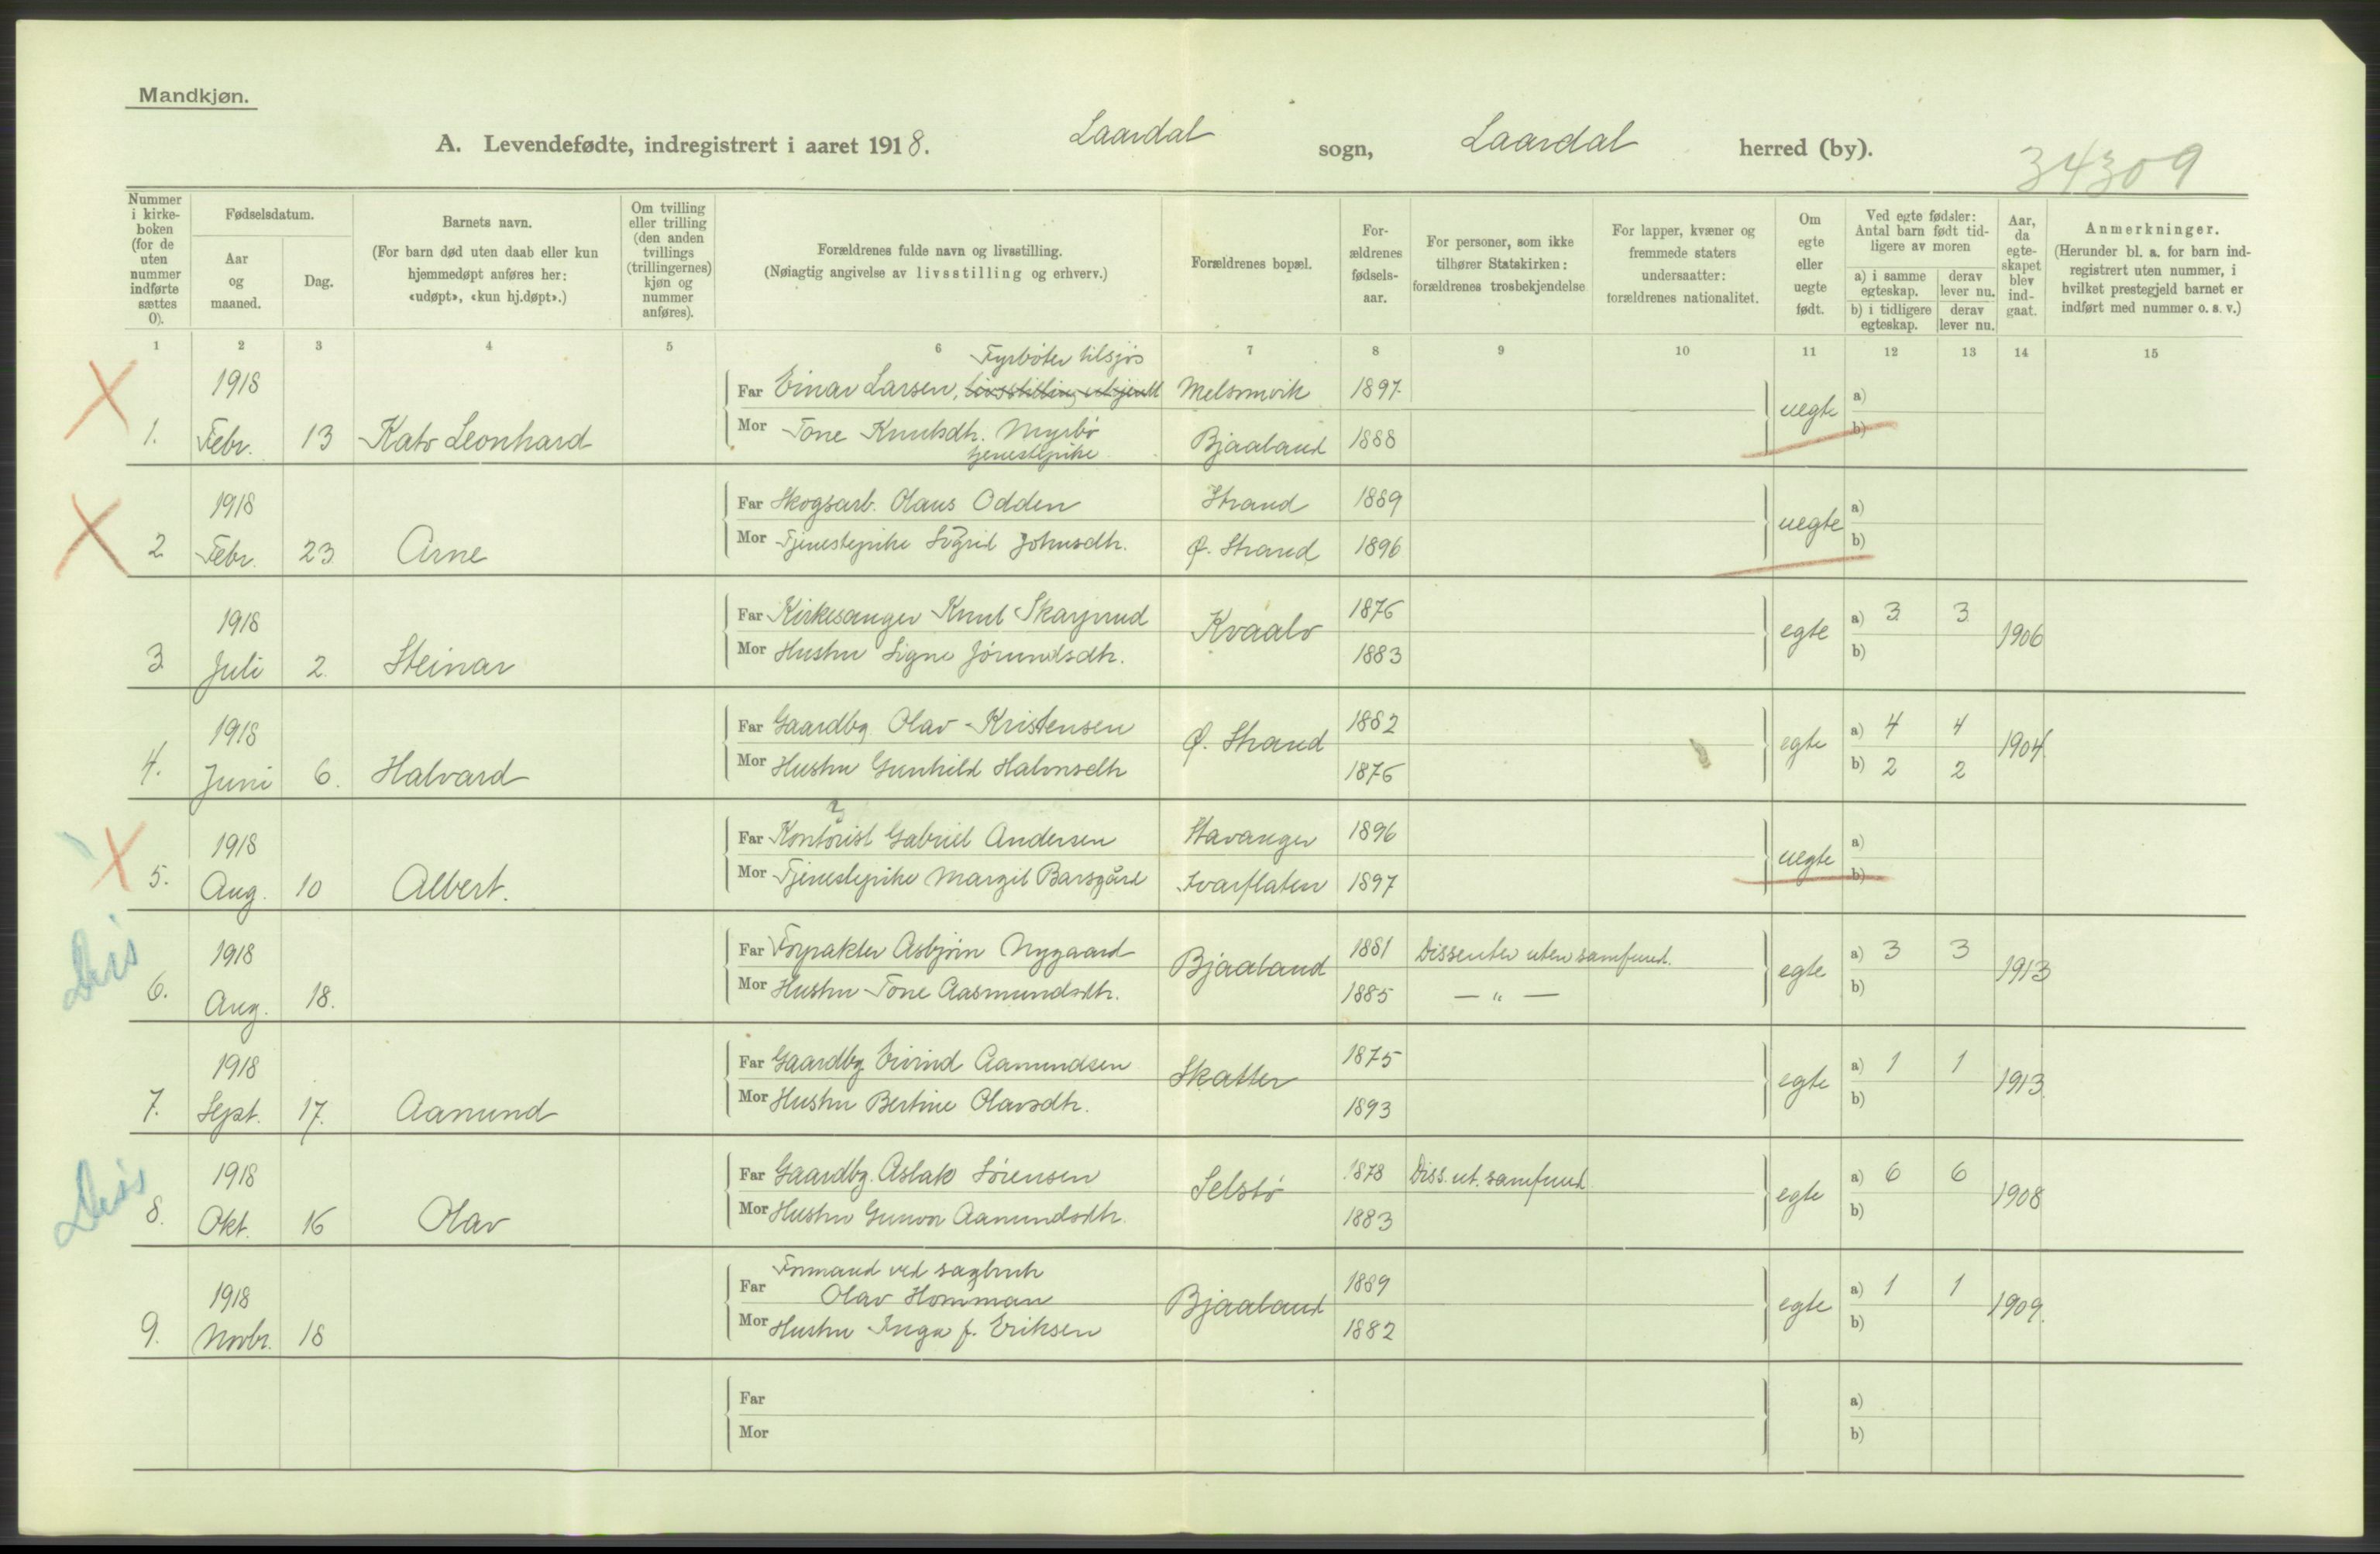 Mandkjøn.
A. Levendefødte, indregistrert i aaret 1918. Laardal sogn, Laardal herred (by).
34309
Nummer i kirke-boken (for de uten nummer indførte sættes 0).
Fødselsdatum.
Aar og maaned.
Dag.
Barnets navn.
(For barn død uten daab eller kun hjemmedøpt anføres her: «udøpt», «kun hj.døpt».)
Om tvilling eller trilling (den anden tvillings (trillingernes) kjøn og nummer anføres).
Forældrenes fulde navn og livsstilling.
(Nøiagtig angivelse av livsstilling og erhverv.)
Forældrenes bopæl.
For-ældrenes fødsels-aar.
For personer, som ikke tilhører Statskirken: forældrenes trosbekjendelse
For lapper, kvæner og fremmede staters undersaatter: forældrenes nationalitet.
Om egte eller uegte født.
Ved egte fødsler: Antal barn født tid-ligere av moren
a) i samme egteskap.
derav lever nu.
b) i tidligere egteskap.
derav lever nu.
Aar, da egte-skapet blev ind-gaat.
Anmerkninger.
(Herunder bl. a. for barn ind-registrert uten nummer, i hvilket prestegjeld barnet er indført med nummer o. s. v.)
1 2 3 4 5 6 7 8 9 10 11 12 13 14 15
Fyrbøter tilsjøs
1918 Far Einar Larsen, livsstilling ukjendt Melsomvik 1897 uegte a)
1. Febr. 13 Kato Leonhard Mor Tone Knutsdtr. Myrbø Bjaaland 1888 b)
tjenestepike
1918 Far Skogsarb. Olaus Odden Strand 1889 uegte a)
2 Febr. 23 Arne Mor Tjenestepike Sigrid Johnsdtr. Ø. Strand 1896 b)
1918 Far Kirkesanger Knut Skarprud Kvaalo 1876 egte a) 3 3 1906
3 Juli 2. Steinar Mor Hustru Signe Jørundsdtr. 1883 b)
1918 Far Gaardbg Olav Kristensen Ø. Strand 1882 egte a) 4 4 1904.
4. Juni 6. Halvard Mor Hustru Gunhild Halvorsdtr 1876 b) 2 2
1918 Far Kontorist Gabriel Andersen Stavanger 1896 uegte a)
5. Aug. 10 Albert. Mor Tjenestepike Margit Barsgård Svarflaten 1897 b)
Dis
1918 Far Forpakter Asbjørn Nygaard Bjaaland 1881 Dissenter uten samfund. egte a) 3 3 1913
6. Aug. 18. Mor Hustru Tone Aasmundsdtr. 1885 — " — b)
1918 Far Gaardbg Eivind Aanundsen Skatter 1875 egte a) 1 1 1913.
7. Sept. 17. Aanund Mor Hustru Bertine Olavsdtr. 1893 b)
Diss
1918 Far Gaardbg. Aslak Sørensen Selstø 1878 Diss. ut. samfund egte a) 6 6 1908
8. Okt. 16 Olav Mor Hustru Gunvor Aanundsdtr. 1883 b)
Formand ved sagbruk
1918 Far Olav Homman Bjaaland 1889 egte a) 1 1 1909.
9. Novbr. 18 Mor Hustru Inga f. Eriksen 1882 b)
Far a)
Mor b)